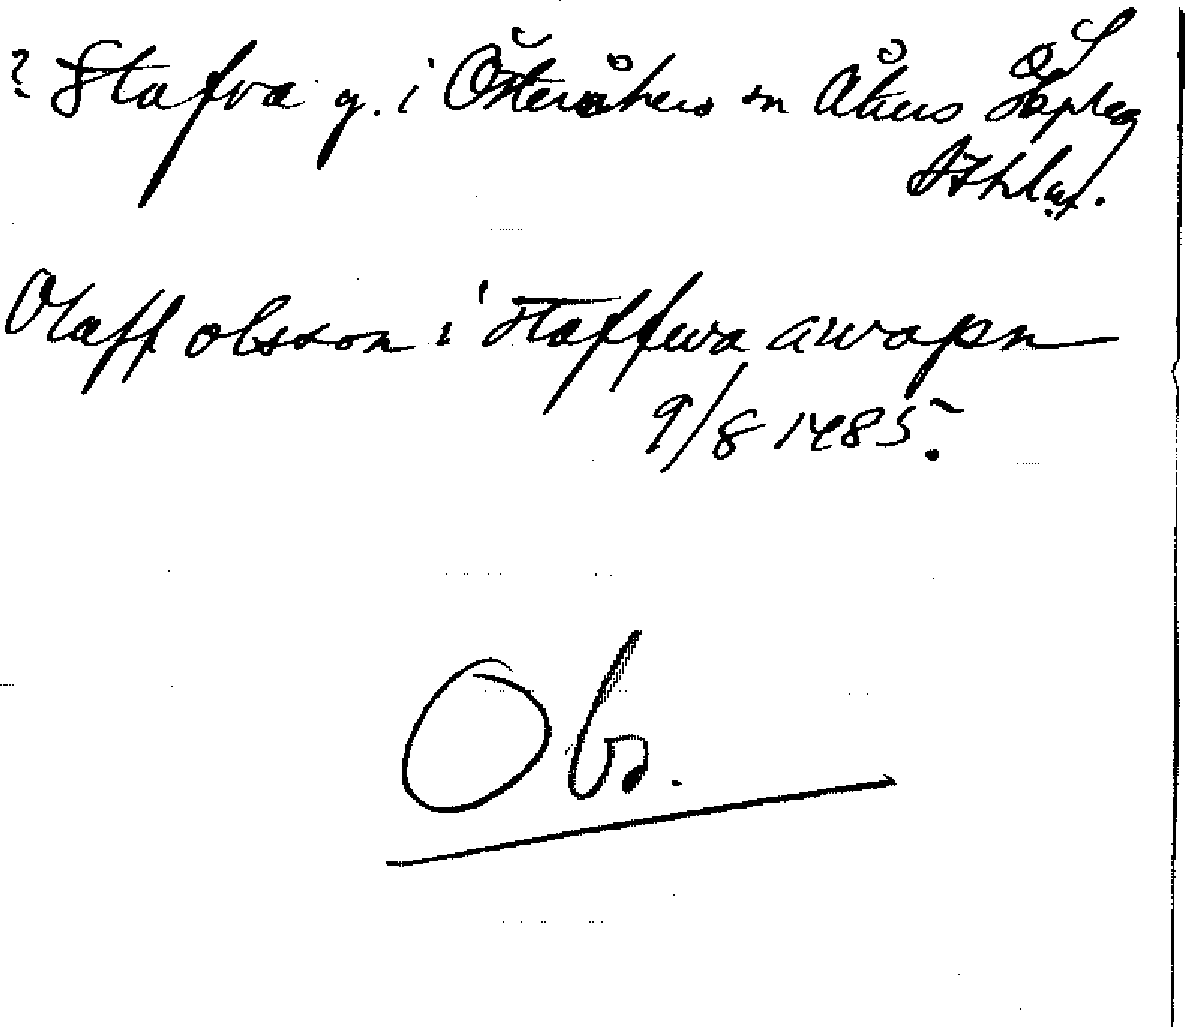 ? Stafva g. i Österåkers sn Åkers Skplag
Sthlm.
Olaff olsson i staffwa a wapn
9/8 1485.
Obs.